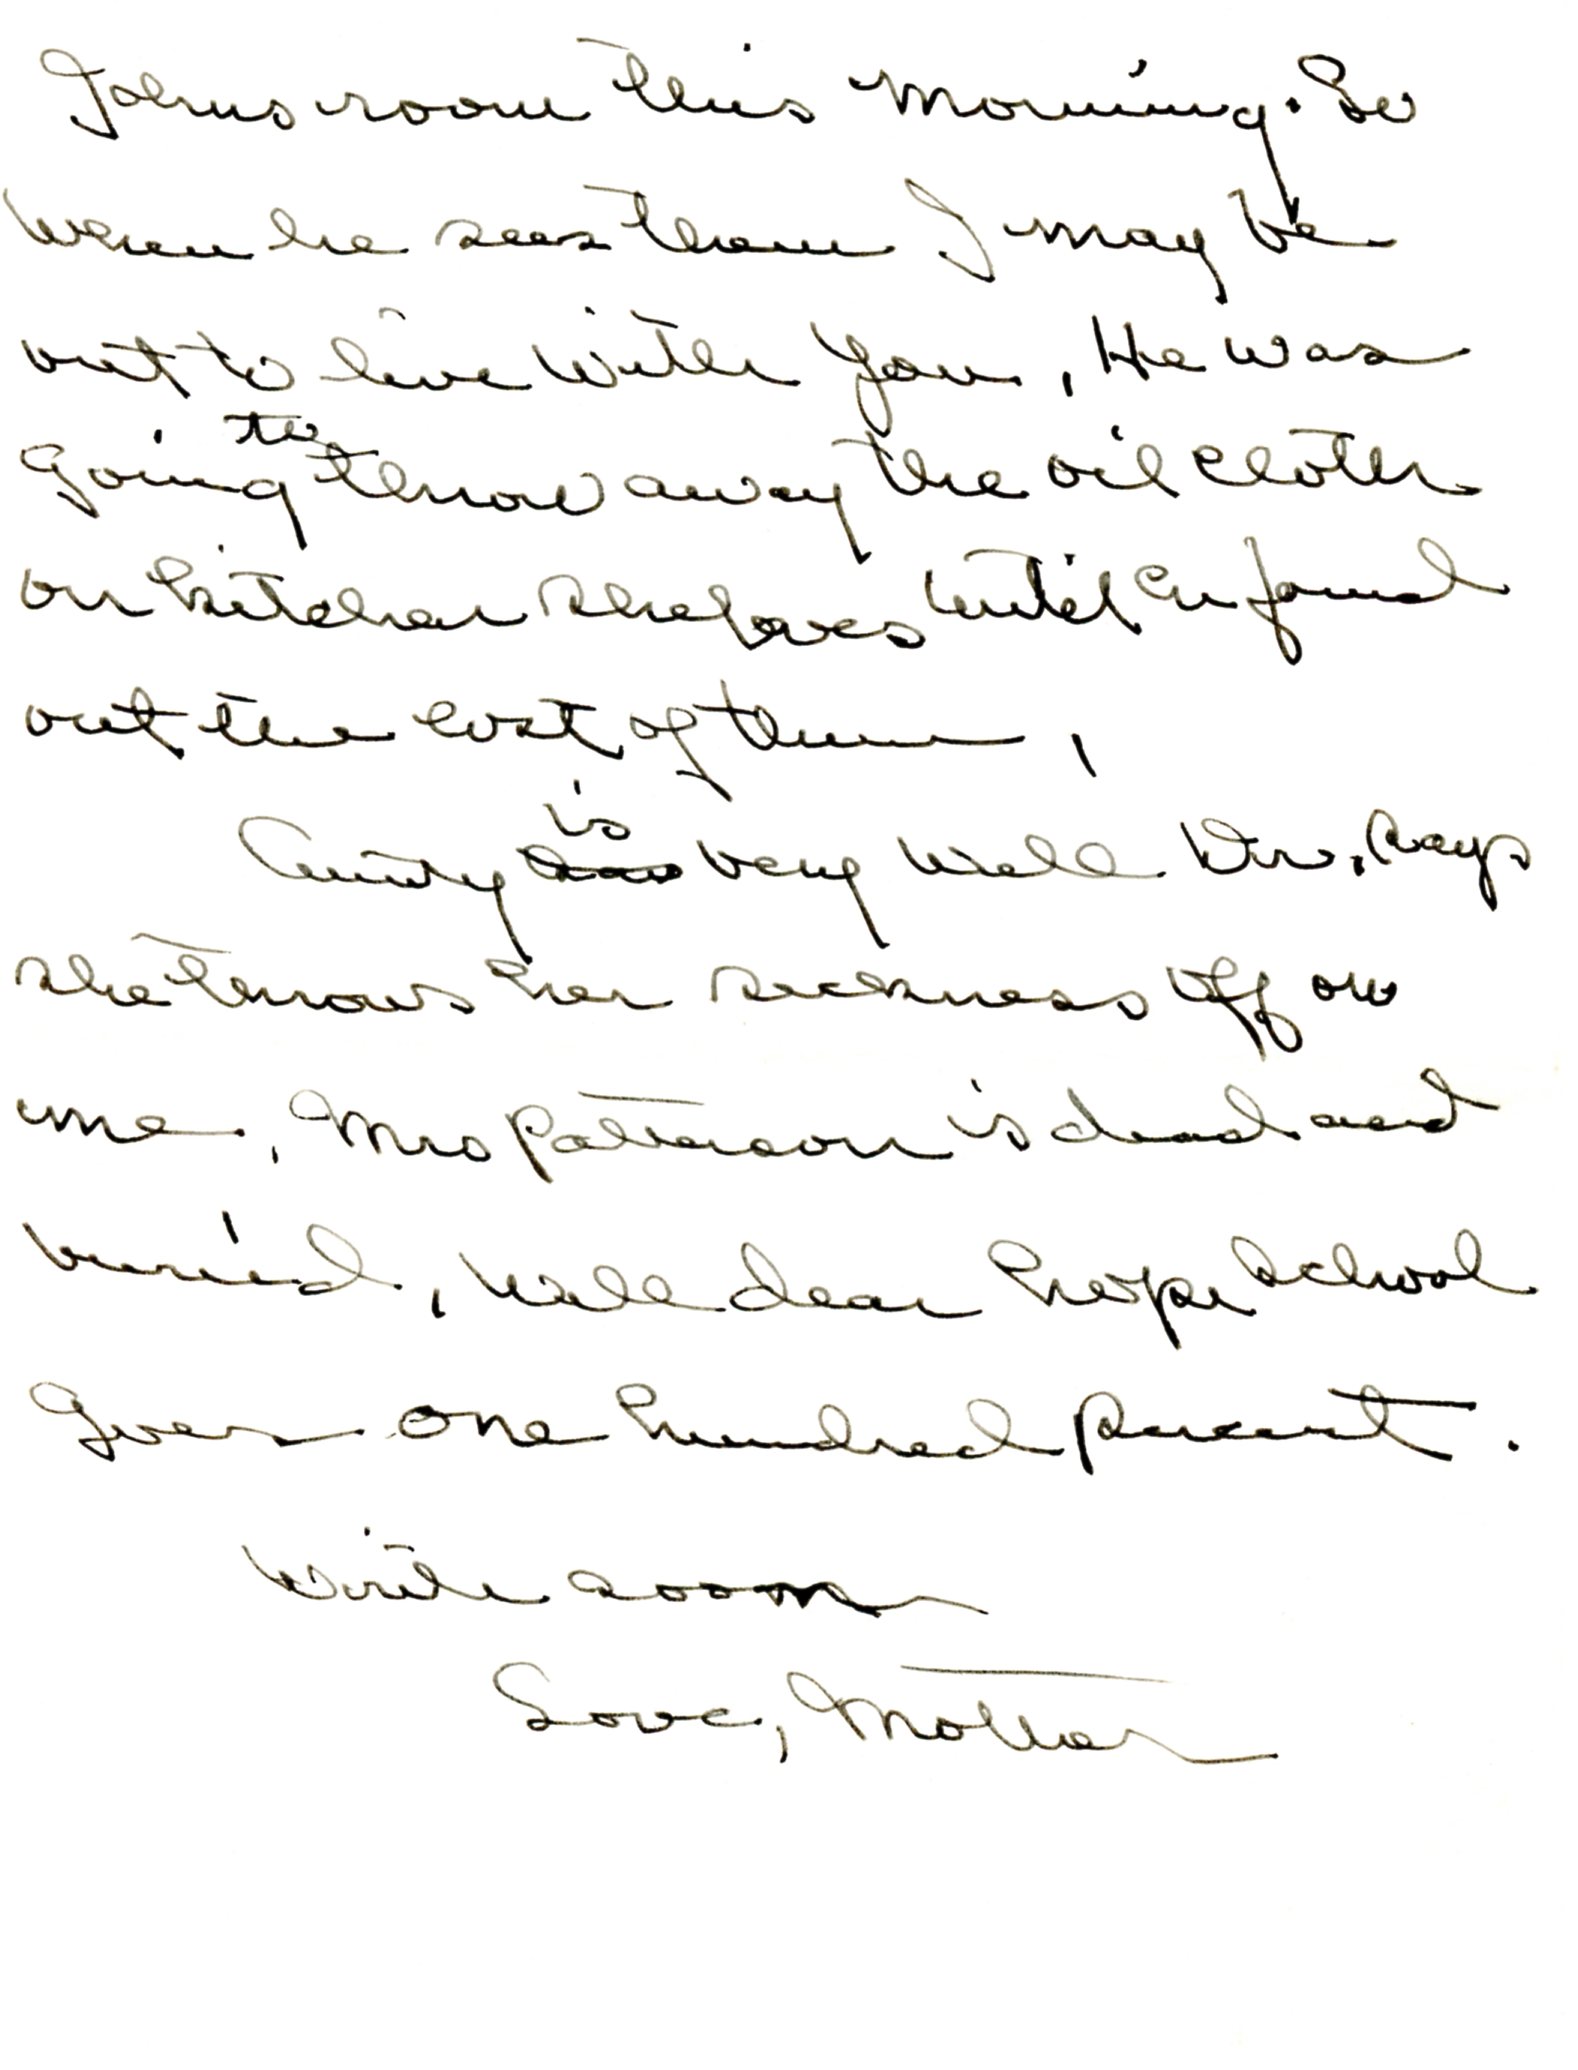 Johns room this morning. So
when he sees them I may be
out to live with you, He was
going to throw away the oil cloth
on kitchen shelves until he found
out the cost of them,
Aunty is very well Dr. says
she throws her sickness off on
me, Mrs Patterson is dead and
buried, Well dear hope school
goes one hundred percent.
Write soon
Love, Mother